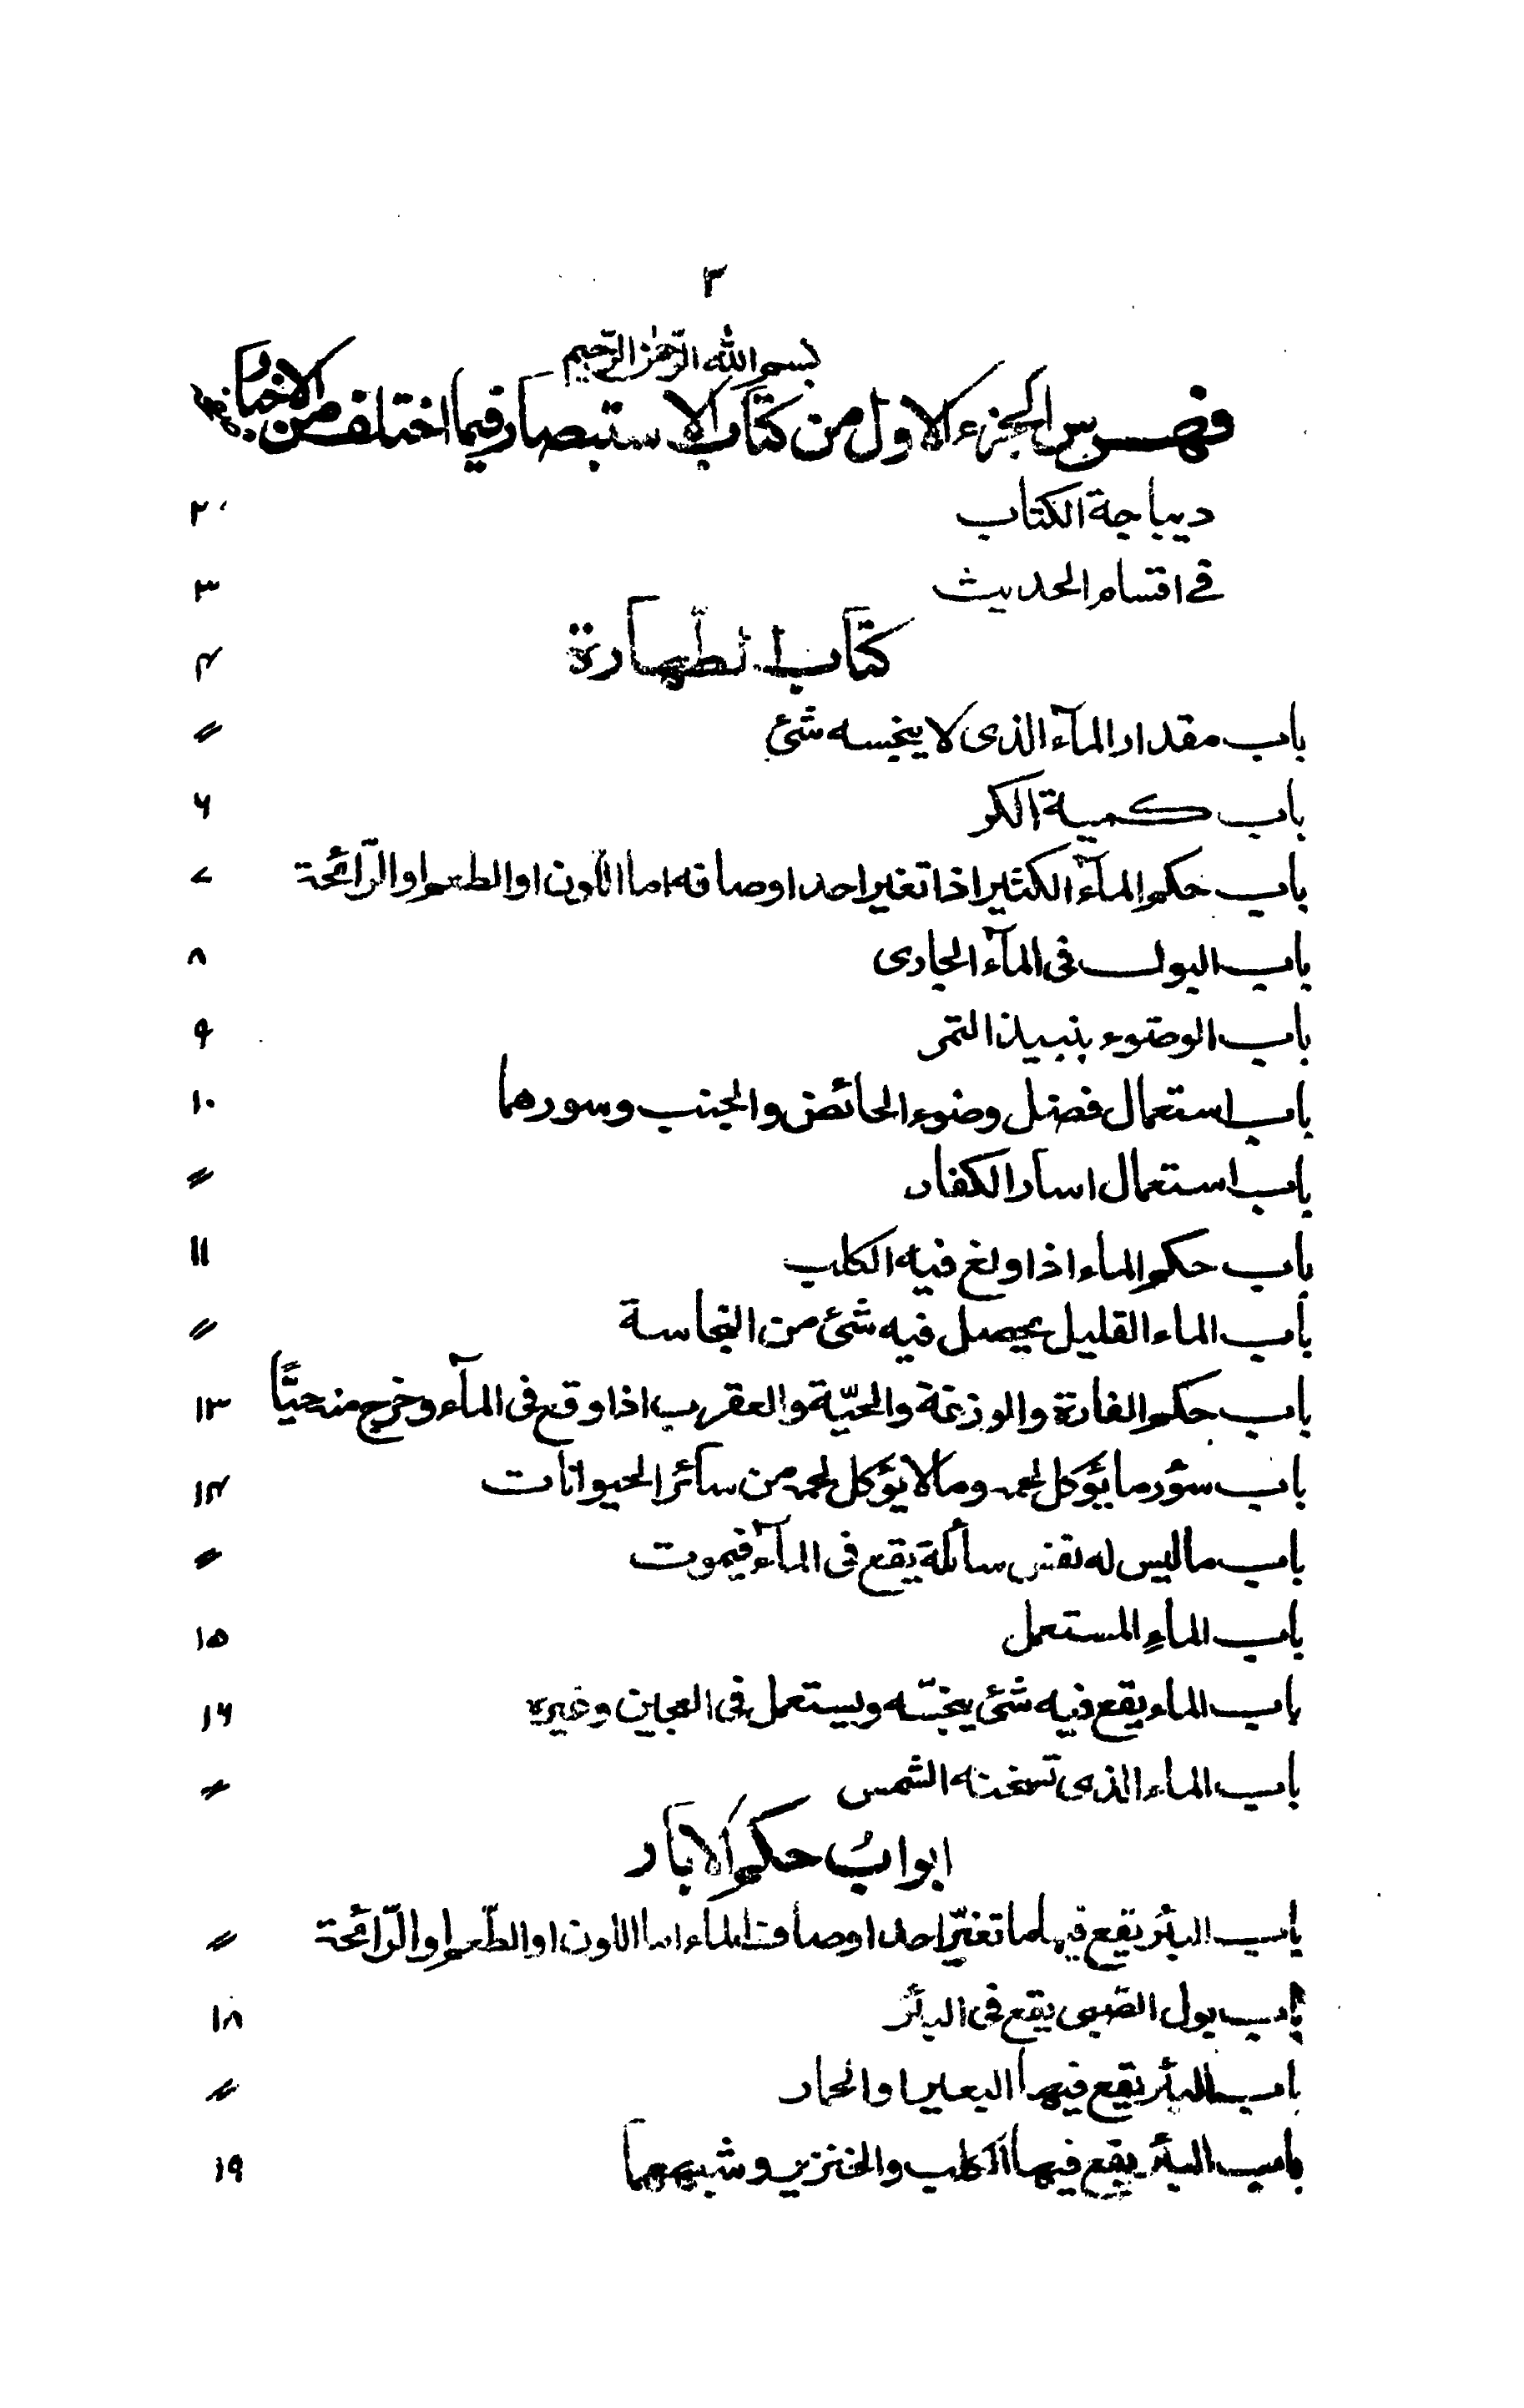 ٣
بسم الله الرحمن الرحيم
فهرس الجزء الاول من كتاب الاستبصار فيما اختلف من الاخبار
ديباجة الكتاب ٢
في اقسام الحديث ٣
كتاب الطهارة ۴
باب مقدار المآء الذى لا ينجسه شئ 〃
باب كمية الكر ۶
باب حكم المآء الكثير اذا تغير احد اوصافه اما اللون او الطعم او الرّائحة ٧
باب البول فى المآء الجارى ٨
باب الوضوء بنبيذ التمر ٩
باب استعمال فضل وضوء الحائض والجنب وسورهما ١٠
باب استعمال اسار الكفار 〃
باب حكم الماء اذا ولغ فيه الكلب ١١
باب الماء القليل يحصل فيه شئ من النجاسة 〃
باب حكم الفارة والوزغة والحيّة والعقرب اذا وقع فى المآء وخرج منه حيًّا ١٣
باب سؤر ما يؤكل لحمه وما لا يؤكل لحمه من سائر الحيوانات ١۴
باب ما ليس له نفس سائلة يقع فى المآء فيموت 〃
باب الماءِ المستعمل ١۵
باب الماء يقع فيه شئ ينجّسه ويستعمل فى العجين وغيره ١۶
باب الماء الذى تسخنه الشمس 〃
ابوابُ حكم الابار
باب البئر يقع فيها ما تغيّر احد اوصاف الماء اما اللون او الطّعم او الرّائحة 〃
باب بول الصّبى يقع فى البئر ١٨
باب البئر يقع فيها البعير او الحمار 〃
باب البئر يقع فيها الكلب والخنزير وشبههما ١٩